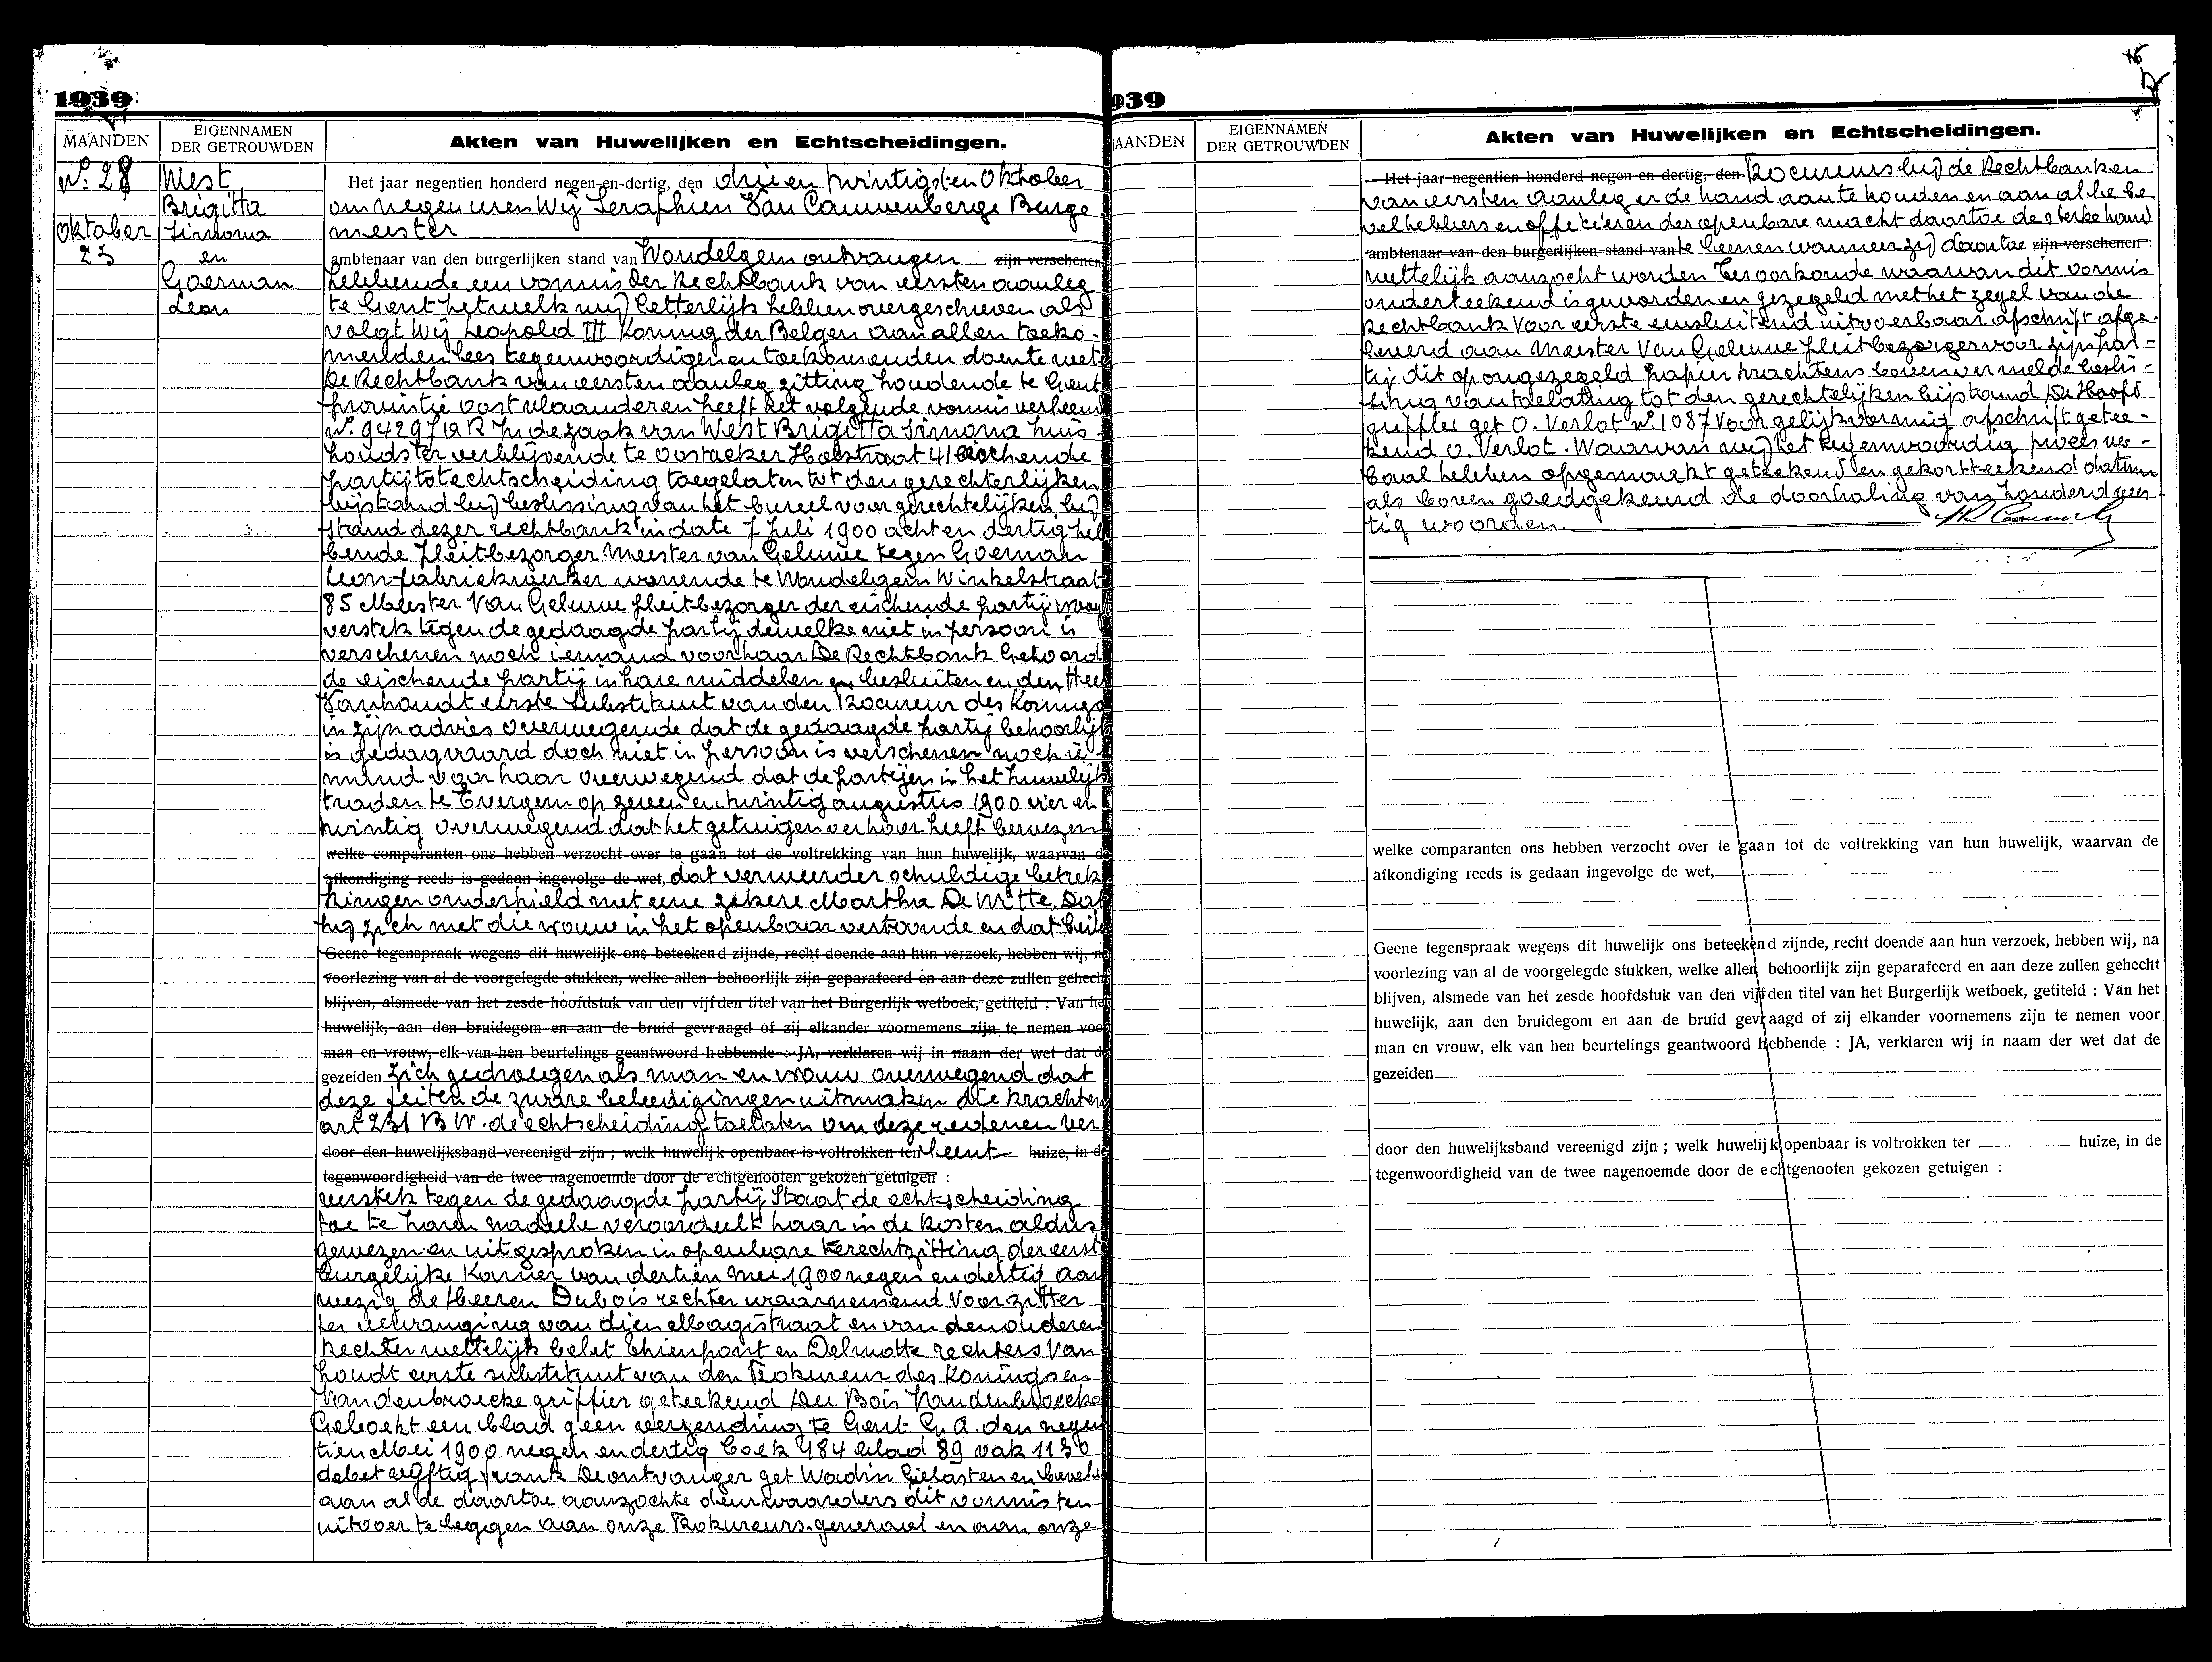 1939
MAANDEN
EIGENNAMEN DER GETROUWDEN
Akten van Huwelijken en Echtscheidingen.
N.º 28
Oktober
23
West
Brigitta
Simona
en
Goeman
Leon
Het jaar negentien honderd negen-en-dertig, den drie en twintigsten Oktober
om negen uren Wij Seraphien Van Cauwenberge Burge
meester
ambtenaar van den burgerlijken stand van Wondelgem ontvangen zijn verschenen
hebbende een vonnis der Rechtbank van eersten aanleg
te Gent hetwelk wij letterlijk hebben overgeschreven als
volgt Wij Leopold III Koning der Belgen aan allen toeko-
menden lees tegenwoordigen en toekomenden doen te wete
De Rechtbank van eersten aanleg zitting houdende te Gent
provintie oost vlaanderen heeft het volgende vonnis verleend
N.º 9429 / A R In de zaak van West Brigitta Simona huis-
houdster verblijvende te Oostacker Holstraat 41 eischende
partij tot echtscheiding toegelaten tot den gerechterlijken
bijstand bij beslissing van het bureel voor gerechtelijken bij
stand dezer rechtbank in date 7 Juli 1900 acht en dertig heb
bende pleitbezorger Meester van Geluwe tegen Goeman
Leon fabriekwerker wonende te Wondelgem Winkelstraat
85 Meester Van Geluwe pleitbezorger der eischende partij vraagt
verstek tegen de gedaagde partij dewelke niet in persoon is
verschenen noch iemand voor haar De Rechtbank Gehoord
de eischende partij in hare middelen en besluiten en den Heer
Vanhoudt eerste Substituut van den Procureur des Konings
in zijn advies overwegende dat de gedaagde partij behoorlijk
is gedagvaard doch niet in persoon is verschenen noch ie-
mand voor haar overwegend dat de partijen in het huwelijk
traden te Evergem op zeven en twintig augustus 1900 vier en
twintig overwegend dat het getuigenverhoor heeft bewezen
welke comparanten ons hebben verzocht over te gaan tot de voltrekking van hun huwelijk, waarvan de
afkondiging reeds is gedaan ingevolge de wet, dat verweerder schuldige betrek
kingen onderhield met eene zekere Martha De Witte. Dat
hij zich met die vrouw in het openbaar vertoonde en dat beide
Geene tegenspraak wegens dit huwelijk ons beteekend zijnde, recht doende aan hun verzoek, hebben wij, na
voorlezing van al de voorgelegde stukken, welke allen behoorlijk zijn geparafeerd en aan deze zullen gehecht
blijven, alsmede van het zesde hoofdstuk van den vijfden titel van het Burgerlijk wetboek, getiteld : Van het
huwelijk, aan den bruidegom en aan de bruid gevraagd of zij elkander voornemens zijn te nemen voor
man en vrouw, elk van hen beurtelings geantwoord hebbende : JA, verklaren wij in naam der wet dat de
gezeiden zich gedroegen als man en vrouw overwegend dat
deze feiten de zware beleedigingen uitmaken die krachten
art 231 B W. de echtscheiding toelaten om deze redenen ver
door den huwelijksband vereenigd zijn ; welk huwelijk openbaar is voltrokken ten leent huize, in de
tegenwoordigheid van de twee nagenoemde door de echtgenooten gekozen getuigen :
verstek tegen de gedaagde partij Staat de echtscheiding
toe te haren nadeele veroordeelt haar in de kosten aldus
gewezen en uitgesproken in openbare terechtzitting der eerste
burgelijke Kamer van dertien Mei 1900 negen en dertig aan
wezig de Heeren Dubois rechter waarnemend Voorzitter
ter vervanging van dien Magistraat en van den ouderen
Rechter wettelijk belet Thienpont en Delmotte rechters Van
houdt eerste substituut van den Prokureur des Konings en
Vandenbroecke griffier geteekend Du Bois Vandenbroecke
Geboekt een blad geen verzending te Gent G. A. den negen
tien Mei 1900 negen en dertig boek 484 blad 89 vak 1136
debet vijftig frank De ontvanger get Wadin Gelasten en bevelen
aan al de daartoe aanzochte deurwaarders dit vonnis ten
uitvoer te leggen aan onze Prokureurs-generaal en aan onze
939
AANDEN
EIGENNAMEN DER GETROUWDEN
Akten van Huwelijken en Echtscheidingen.
Het jaar negentien honderd negen-en-dertig, den Procureurs bij de Rechtbanken
van eersten aanleg er de hand aan te houden en aan alle be-
velhebbers en officieren der openbare macht daartoe de sterke hand
ambtenaar van den burgerlijken stand van te leenen wanneer zij daartoe zijn verschenen :
wettelijk aanzocht worden Ter oorkonde waarvan dit vonnis
onderteekend is geworden en gezegeld met het zegel van de
Rechtbank Voor eerste eensluitend uitvoerbaar afschrift afge-
leverd aan Meester Van Geluwe pleitbezorger voor zijn par-
tij dit op ongezegeld papier krachtens bovenvermelde beslis-
sing van toelating tot den gerechtelijken bijstand De Hoofd
griffier get O. Verlot N.º 1087 Voor gelijkvormig afschrift getee-
kend O. Verlot. Waarvan wij het tegenwoordig proces ver-
baal hebben opgemaakt geteekend en gekortteekend datum
als boven goedgekeurd de doorhaling van honderd vees-
tig woorden.
welke comparanten ons hebben verzocht over te gaan tot de voltrekking van hun huwelijk, waarvan de
afkondiging reeds is gedaan ingevolge de wet,
Geene tegenspraak wegens dit huwelijk ons beteekend zijnde, recht doende aan hun verzoek, hebben wij, na
voorlezing van al de voorgelegde stukken, welke allen behoorlijk zijn geparafeerd en aan deze zullen gehecht
blijven, alsmede van het zesde hoofdstuk van den vijfden titel van het Burgerlijk wetboek, getiteld : Van het
huwelijk, aan den bruidegom en aan de bruid gevraagd of zij elkander voornemens zijn te nemen voor
man en vrouw, elk van hen beurtelings geantwoord hebbende : JA, verklaren wij in naam der wet dat de
gezeiden
door den huwelijksband vereenigd zijn ; welk huwelijk openbaar is voltrokken ter huize, in de
tegenwoordigheid van de twee nagenoemde door de echtgenooten gekozen getuigen :